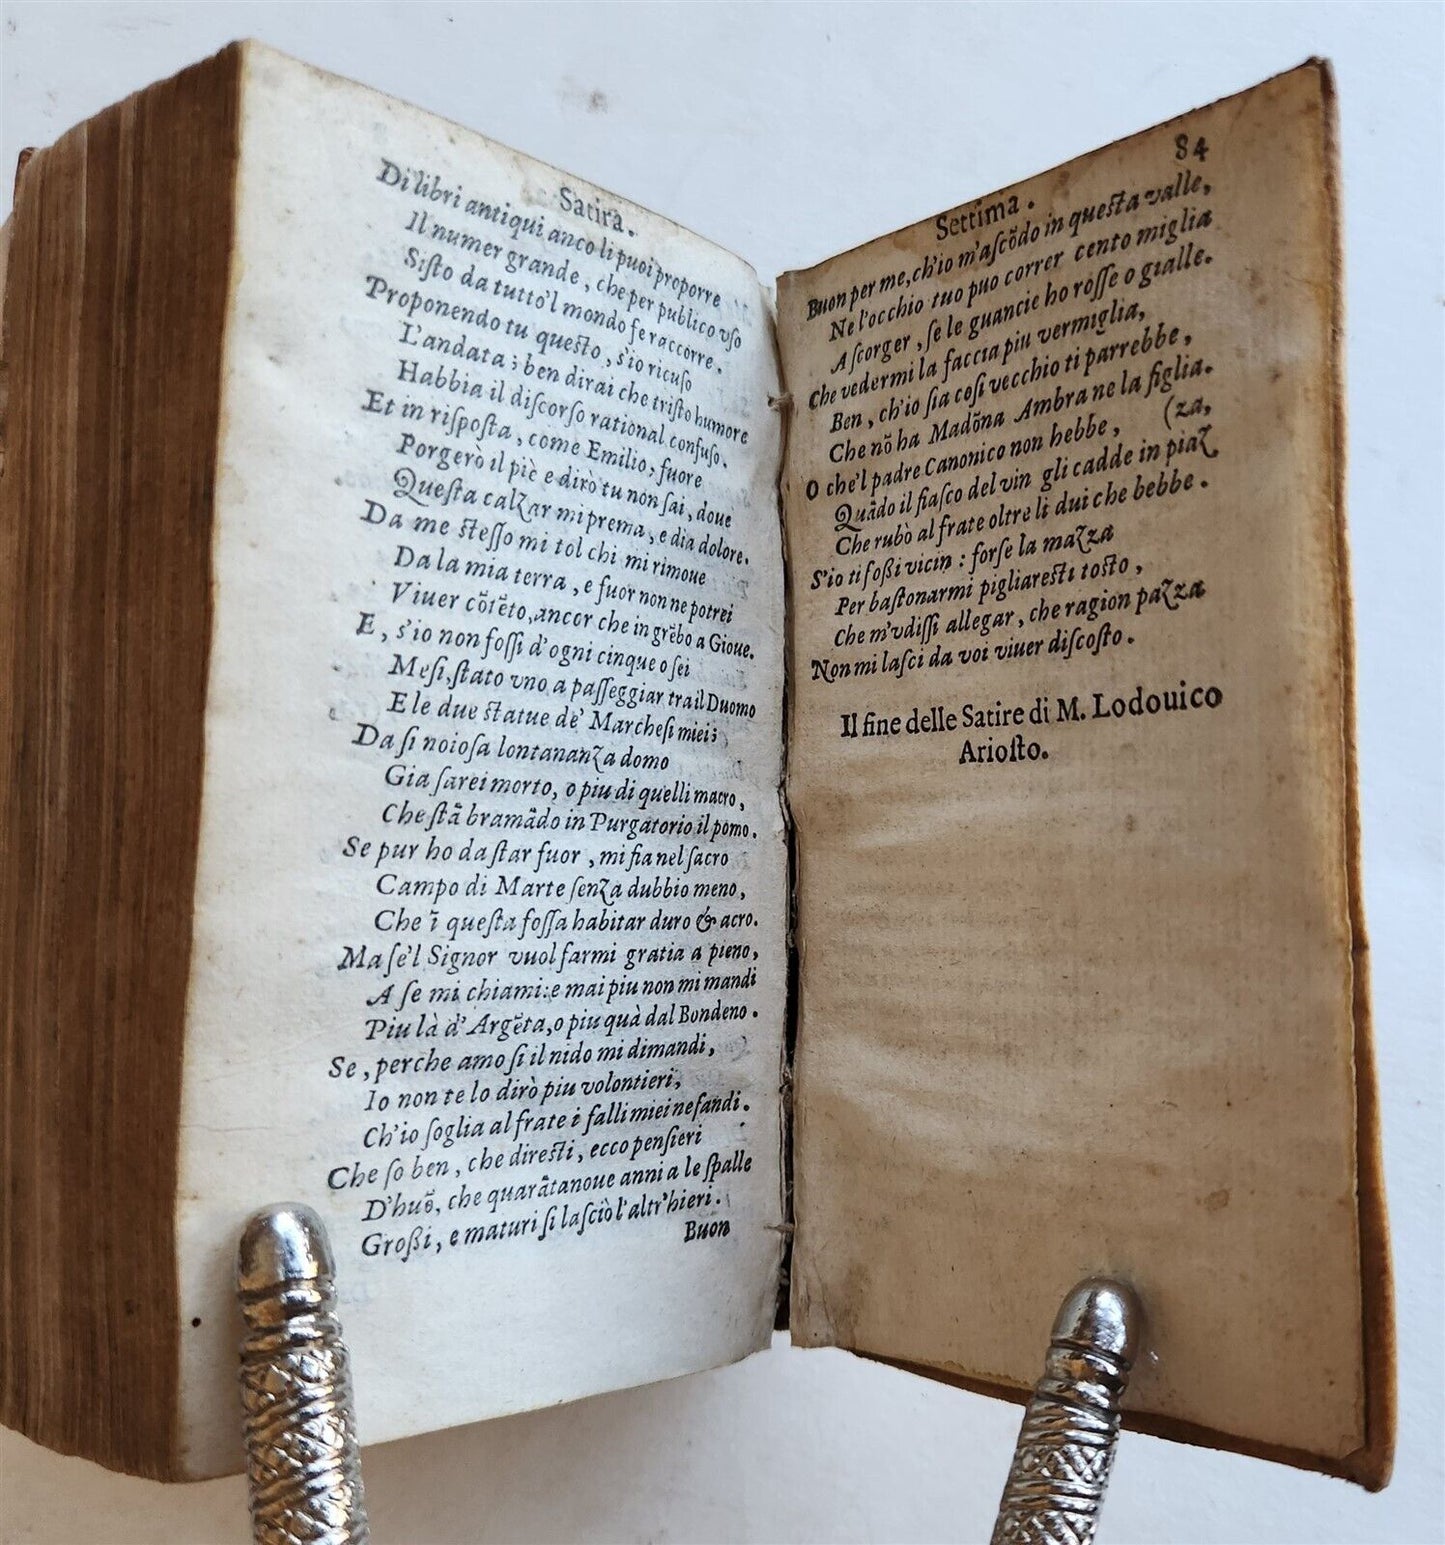 Satira.
Di libri antiqui anco li puoi proporre
Il numer grande, che per publico vſo
Siſto da tutto'l mondo fe raccorre.
Proponendo tu queſto, s'io ricuſo
L'andata; ben dirai che triſto humore
Habbia il diſcorſo rational confuſo.
Et in riſpoſta, come Emilio, fuore
Porgerò il piè e dirò tu non ſai, doue
Queſta calzar mi prema, e dia dolore.
Da me ſteſſo mi tol chi mi rimoue
Da la mia terra, e fuor non ne potrei
Viuer cõtẽto, ancor che in grẽbo a Gioue.
E, s'io non foſſi d'ogni cinque o ſei
Meſi, ſtato vno a paſſeggiar tra il Duomo
E le due ſtatue de' Marcheſi miei;
Da ſi noioſa lontananza domo
Gia ſarei morto, o piu di quelli macro,
Che ſtã bramãdo in Purgatorio il pomo.
Se pur ho da ſtar fuor, mi fia nel ſacro
Campo di Marte ſenza dubbio meno,
Che ĩ queſta foſſa habitar duro & acro.
Ma ſe'l Signor vuol farmi gratia a pieno,
A ſe mi chiami: e mai piu non mi mandi
Piu là d'Argẽta, o piu quà dal Bondeno.
Se, perche amo ſi il nido mi dimandi,
Io non te lo dirò piu volontieri,
Ch'io ſoglia al frate i falli miei nefandi.
Che ſo ben, che direſti, ecco penſieri
D'huõ, che quarãtanoue anni a le ſpalle
Groſſi, e maturi ſi laſciò l'altr'hieri.
Buon
84
Settima.
Buon per me, ch'io m'aſcõdo in queſta valle,
Ne l'occhio tuo puo correr cento miglia
A ſcorger, ſe le guancie ho roſſe o gialle.
Che vedermi la faccia piu vermiglia,
Ben, ch'io ſia coſi vecchio ti parrebbe,
Che nõ ha Madõna Ambra ne la figlia.
O che'l padre Canonico non hebbe, (za,
Quãdo il fiaſco del vin gli cadde in piaz
Che rubò al frate oltre li dui che bebbe.
S'io ti foſſi vicin: forſe la mazza
Per baſtonarmi pigliareſti toſto,
Che m'vdiſſi allegar, che ragion pazza
Non mi laſci da voi viuer diſcoſto.
Il fine delle Satire di M. Lodouico
Arioſto.